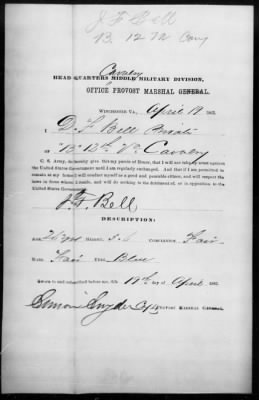 J F Bell
B. 12 Va Cavy
Cavalry
HEAD QUARTERS MIDDLE MILITARY DIVISION,
OFFICE PROVOST MARSHAL GENERAL.
WINCHESTER VA. April 19 1865.
I D. F Bell Private
"B" 12th Va Cavalry
C. S. Army, do hereby give this parole of Honor, that I will not take up arms against
the United States Government until I am regularly exchanged. And that if I am permitted to
remain at my home I will conduct myself as a good and peaceable citizen, and will respect the
laws in force where I reside, and will do nothing to the detriment of, or in opposition to the
United States Government.
J. F. Bell
DESCRIPTION:
HEIGHT, COMPLEXION, Fair
HAIR Fair EYES Blue
Sworn to and subscribed before me, this 19th day of April 1865.
Simon Snyder Capt PROVOST MARSHAL GENERAL.